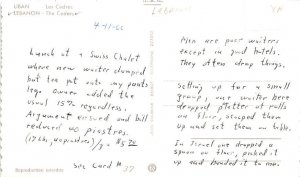 LIBAN Les Cedres
LEBANON The Cedars
4-11-60
Lunch at a Swiss Chalet
where new waiter dumped
hot tea pot onto my pants
leg. Owner added the
usual 15% regardless.
Argument ensued and bill
reduced 40 piastres.
= $5.70
See Card #37
Reproduction interdite
Men are poor waiters
except in good hotels.
They often drop things.
Setting up for a small
group, our waiter here
dropped platter of rolls
on floor, scooped them
up and set them on table.
In Israel one dropped a
spoon on floor, picked it
up and handed it to me.